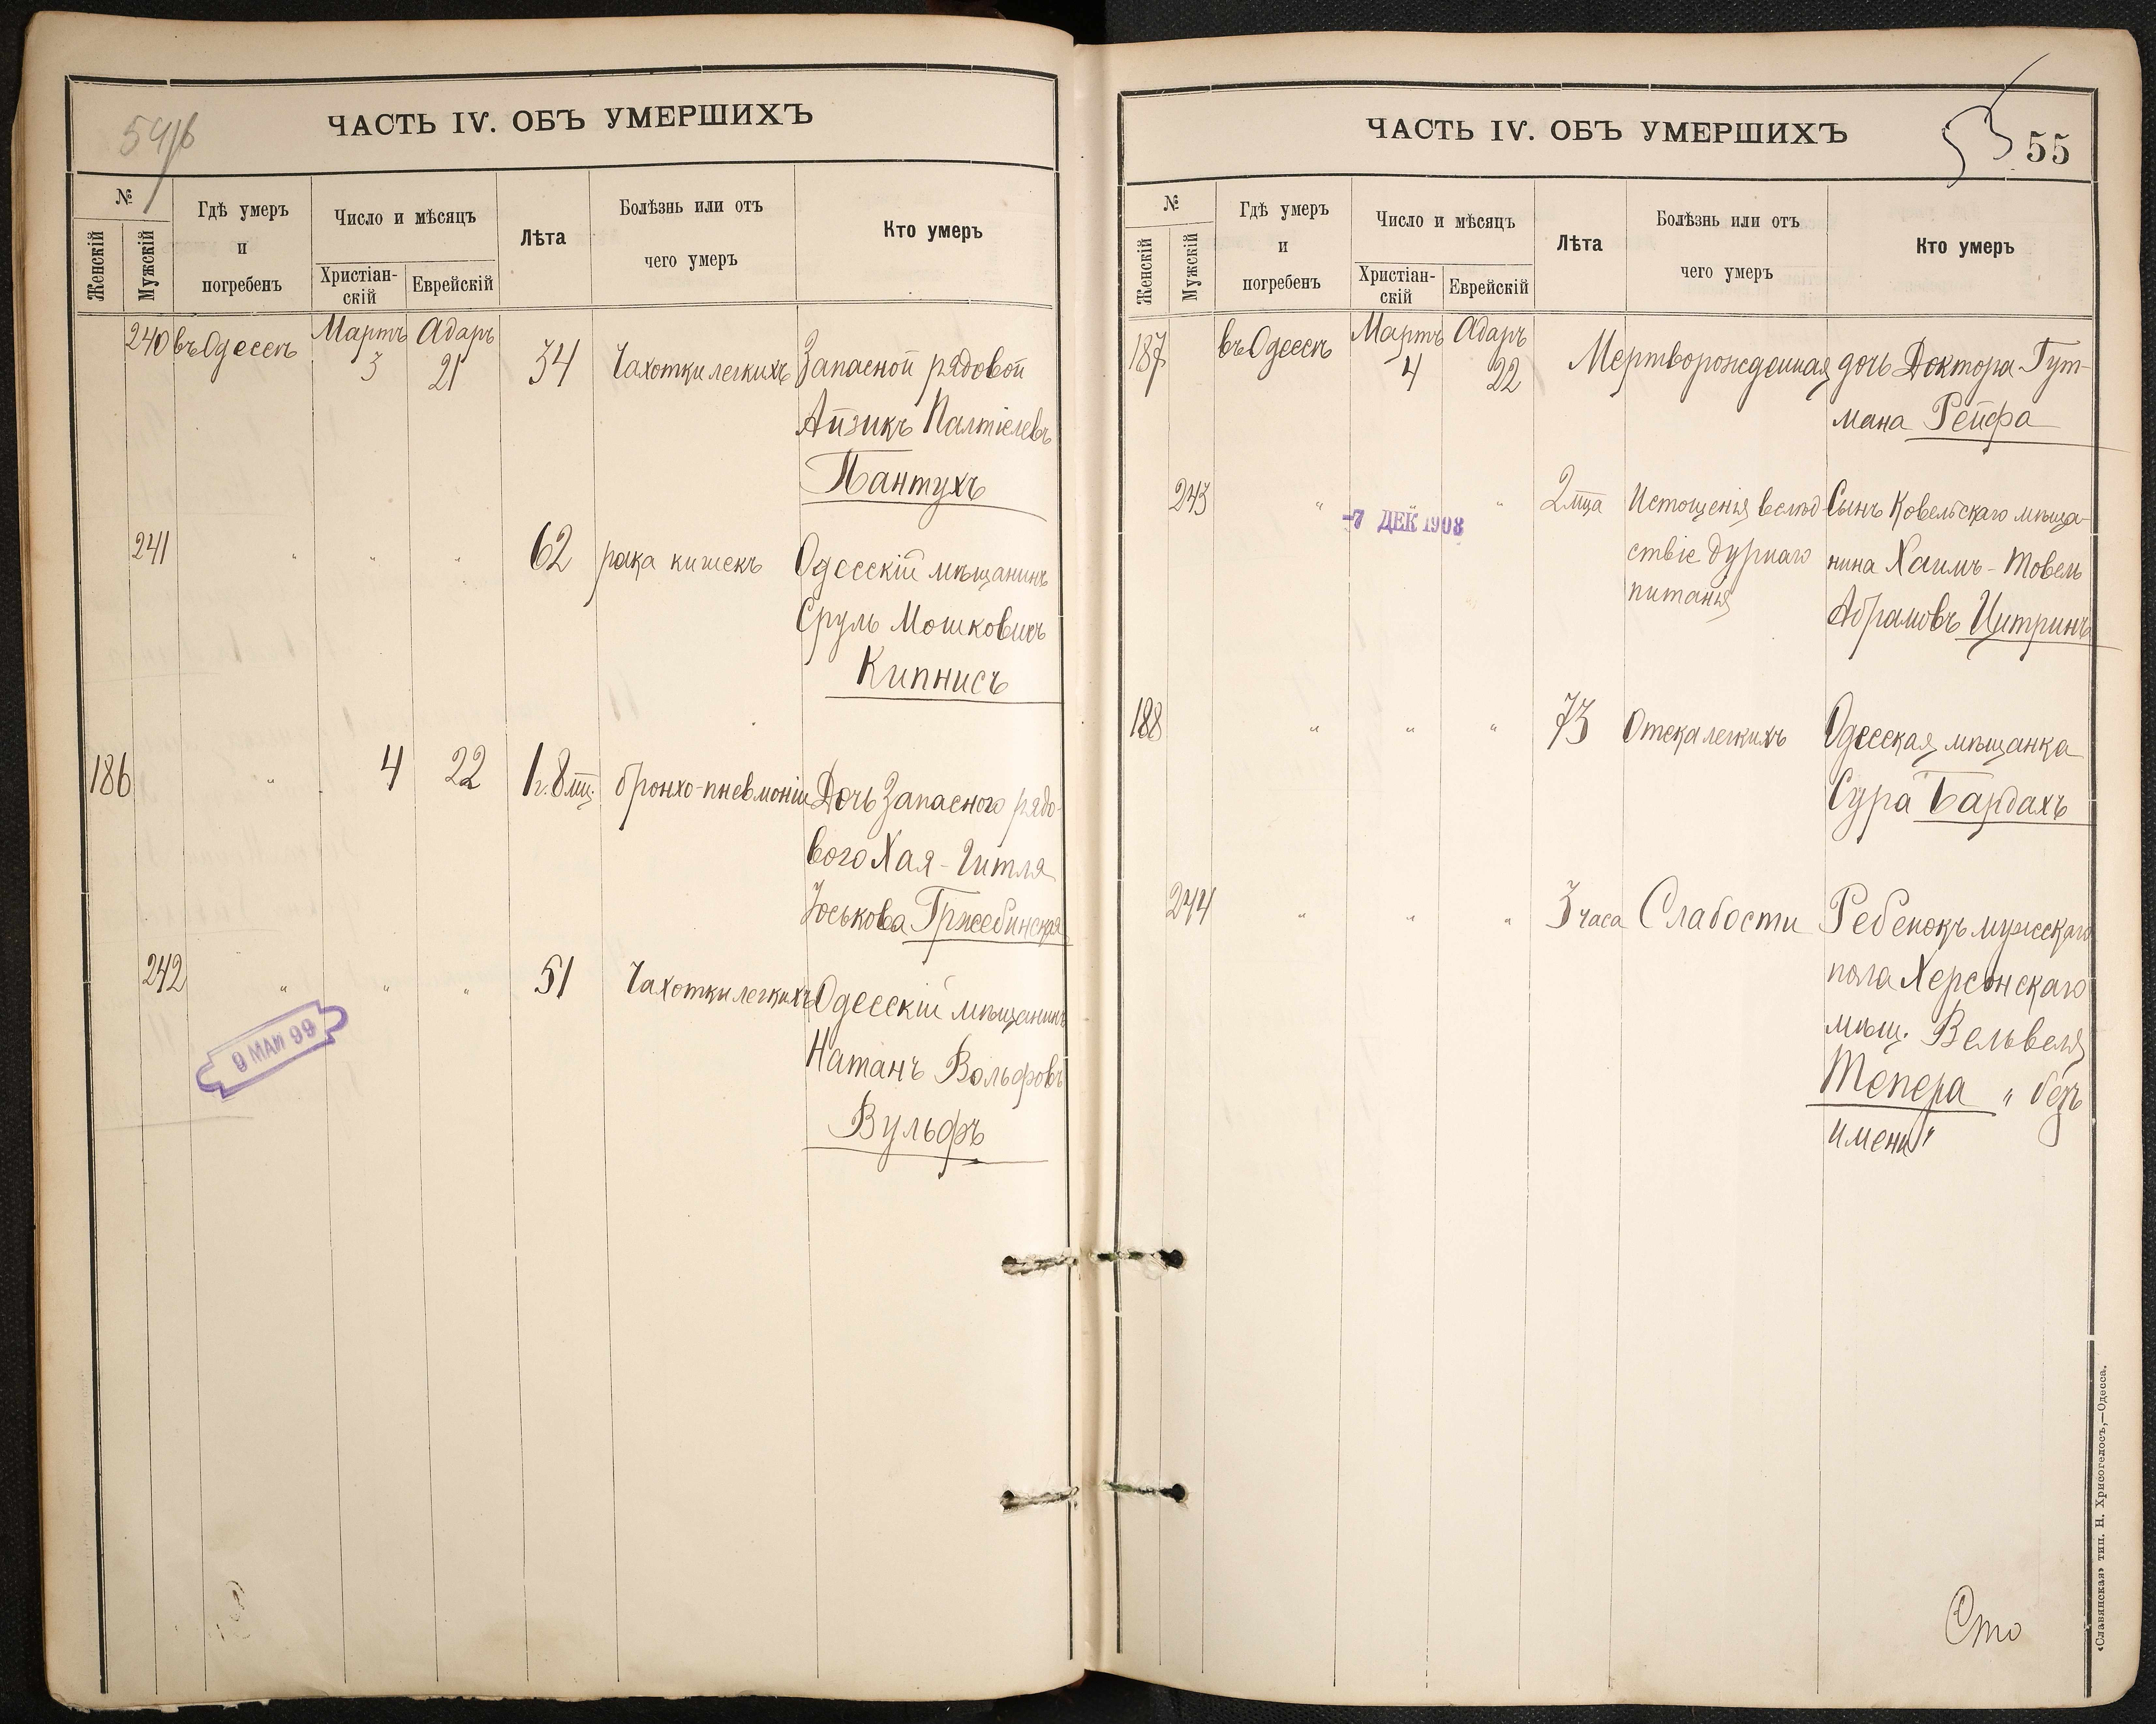 54/б
ЧАСТЬ IV. ОБЪ УМЕРШИХЪ
№
Женскій
Мужскій
Гдѣ умеръ
и
погребенъ
Число и мѣсяцъ
Христіан-
скій
Еврейскій
Лѣта
Болѣзнь или отъ
чего умеръ
Кто умеръ
240 въ Одессѣ Мартъ 3 Адаръ 21 34 Чахотки легкихъ Запасной рядовой
Айзикъ Палтіелевъ
Пантухъ
241 " " " 62 рака кишекъ Одесскій мѣщанинъ
Сруль Мошковичъ
Кипнисъ
186 " 4 22 1 г. 8 мц. бронхо-пневмоніи Дочь Запасного рядо-
вого Хая-Гитля
Юськова Гржебинская
242 " " " 51 Чахотки легкихъ Одесскій мѣщанинъ
Натанъ Вольфовъ
Вульфъ
9 МАИ 99
ЧАСТЬ IV. ОБЪ УМЕРШИХЪ
55
№
Женскій
Мужскій
Гдѣ умеръ
и
погребенъ
Число и мѣсяцъ
Христіан-
скій
Еврейскій
Лѣта
Болѣзнь или отъ
чего умеръ
Кто умеръ
187 въ Одессѣ Мартъ 4 Адаръ 22 Мертворожденная дочь Доктора Гут-
мана Рейфа
243 " " 2 мца Истощенія вслѣд Сынъ Ковельскаго мѣща-
-7 ДЕК 1908
ствіе дурнаго нина Хаимъ-Товель
питанія Абрамовъ Цитринъ
188 " " " 73 Отека легкихъ Одесская мѣщанка
Сура Бардахъ
244 " " " 3 часа Слабости Ребенокъ мужскаго
пола Херсонскаго
мѣщ. Вельвеля
Тепера "безъ
имени"
Сто
«Славянская» тип. Н. Хрисогелосъ,—Одесса.